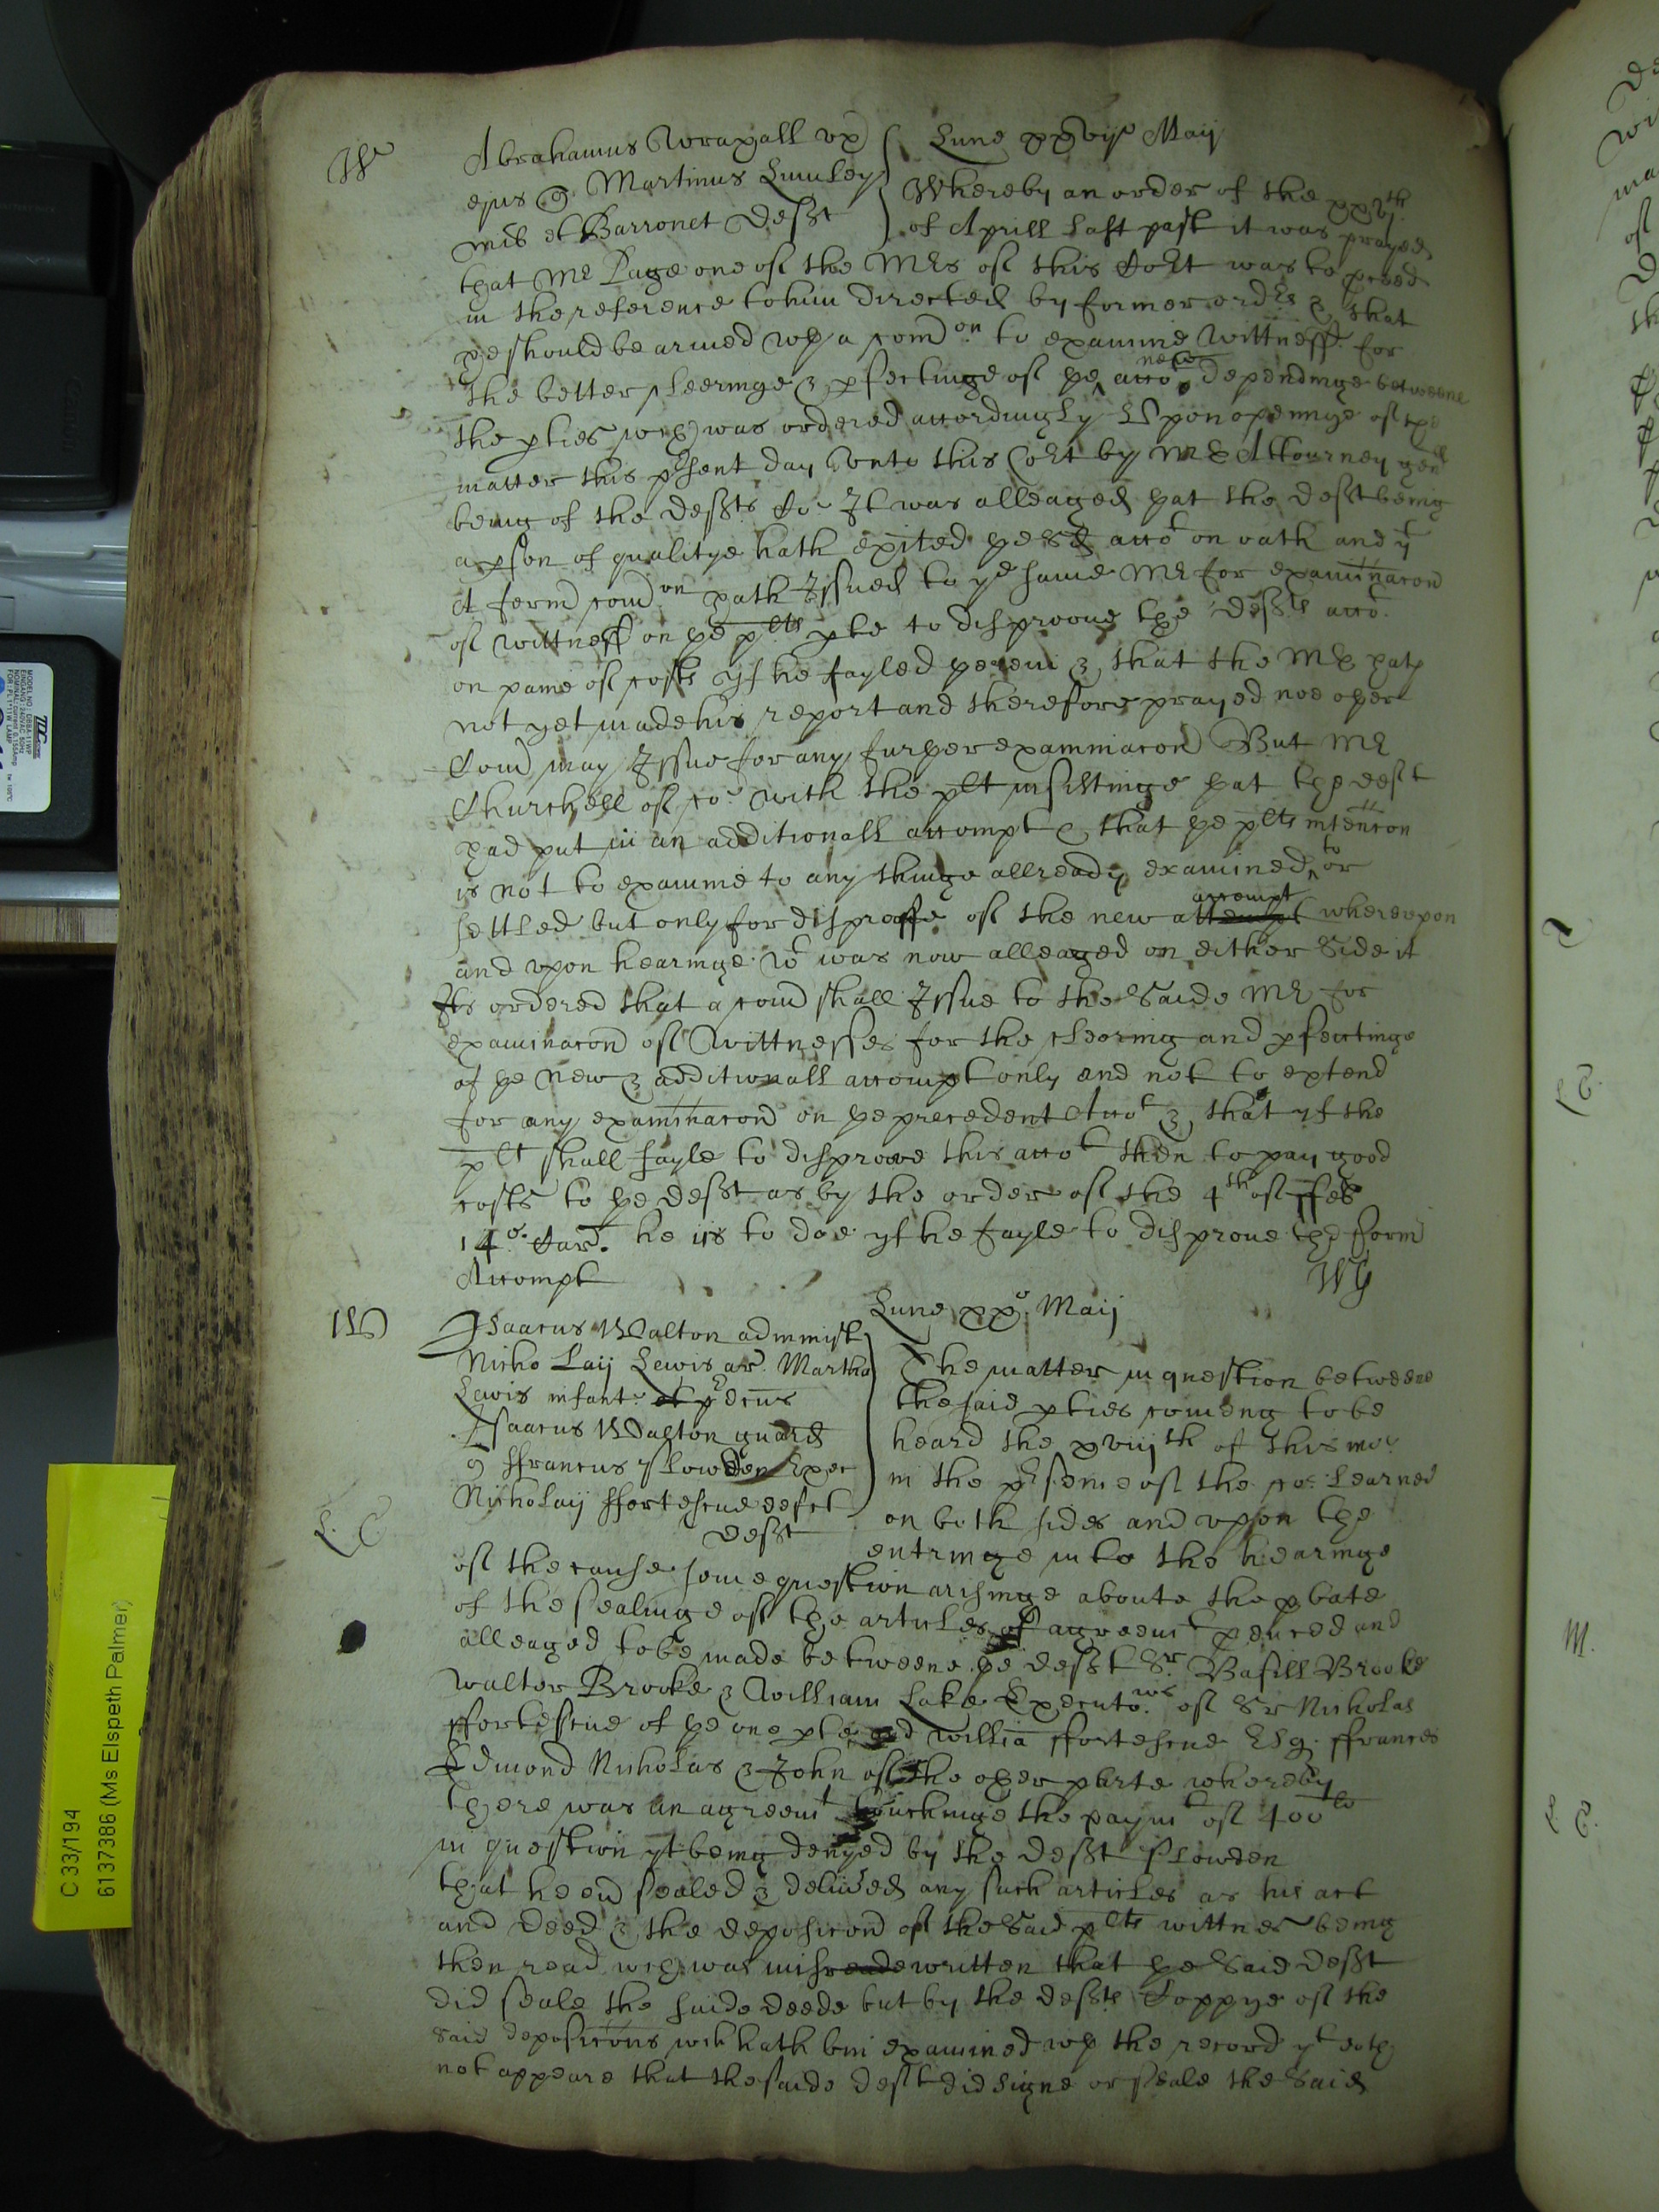 We
Abrahamus Wraxall ux
ejus Martinus Lumley
mil et Barronet Defft
Lune xxvijo Maij
Whereby an order of the xxvjth
of Aprill last past it was prayed
that Mr Page one of the Mrs of this Cort was to pceed
in the reference to him directed by former ordrs & that
he should be armed wth a comd on to examine Wittness for
the better cleeringe & pfectinge of the new acco dependinge betweene
the pties wch was ordered accordingly Upon openinge of the
matter this prsent day unto this Cort by Mr Attourney genall
being of the deffts Co It was alleaged that the defft being
a pson of qualitye hath exited the sd acct on oath and yt
A form comd on hath Issued to ye same Mr for examinacon
of wittness on the plts pte to disproove the deffts acco
on paine of costs yf he fayled therein & that the Mr hath
not yet made his report and therefore prayed noe other
Comd may Issue for any further examinacon But Mr
Churchell of co with the plt insistinge that the deft
had put in an additionall accompt & that the plts intencon
is not to examine to any thinge allready examined to or
settled but only for disproffe of the new accompt whereupon
and upon hearinge wt was now alleaged on either Side it
Is ordered that a comd shall Issue to the Saide Mr for
examinacon of Wittnesses for the cleering and pfectinge
of the new & additionall accompt only and not to extend
for any examinacon on the precedent Acct & that yf the
plt shall fayle to disproove this acct then to pay good
costs to the defft as by the order of the 4th of ffeb
14o Car. he is to doe yf he fayle to disprove the form
Accompt
Wa
Lune xxo Maij
Isaacus Walton administ
Nicholaij Lewis ar. Martha
Lewis infant
Isaacus Walton guard
ffrancus Plowden Exec
Nicholaij ffortescue defct
Defft
L. C
The matter in question betweene
the said pties comeing to be
heard the xviijth of this mo
in the prsence of the co. learned
on both sides and upon the
entringe into the hearinge
of the cause some question arisinge aboute the pbate
of the sealinge of the articles of agreemt pduced and
alleaged to be made betweene the defft Sr Basill Brooke
Walter Brooke & William Lake Executors of Sr Nicholas
ffortescue of the one pte and Willia ffortescue Esq. ffrances
Edmond Nicholas & John of the other parte whereby
there was an agreemt touchinge the paymt of 400li
in question yt being denyed by the defft Plowden
that he ever sealed & delived any such articles as his act
and Deed & the deposicon of the Said plts wittnes being
then read wch was misreade written that the Said defft
did seale the saide deede but by the deffts Coppye of the
Said deposicons wch hath bin examined wth the record yt doth
not appeare that the saide defft did signe or seale the Said
C 33/194
6137386 (Ms Elspeth Palmer)